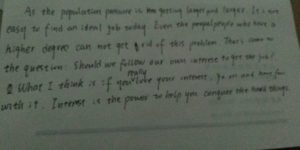 As the population pressure is been getting larger and larger. It is not
easy to find an ideal job today. Even the people who have a
higher degree can not get rid of this problem. That's come to
the question: Should we follow our own interest to get the job?
What I think is if you really love your interest. Go on and have fun
with it. Interest is the power to help you conquer the hard things.